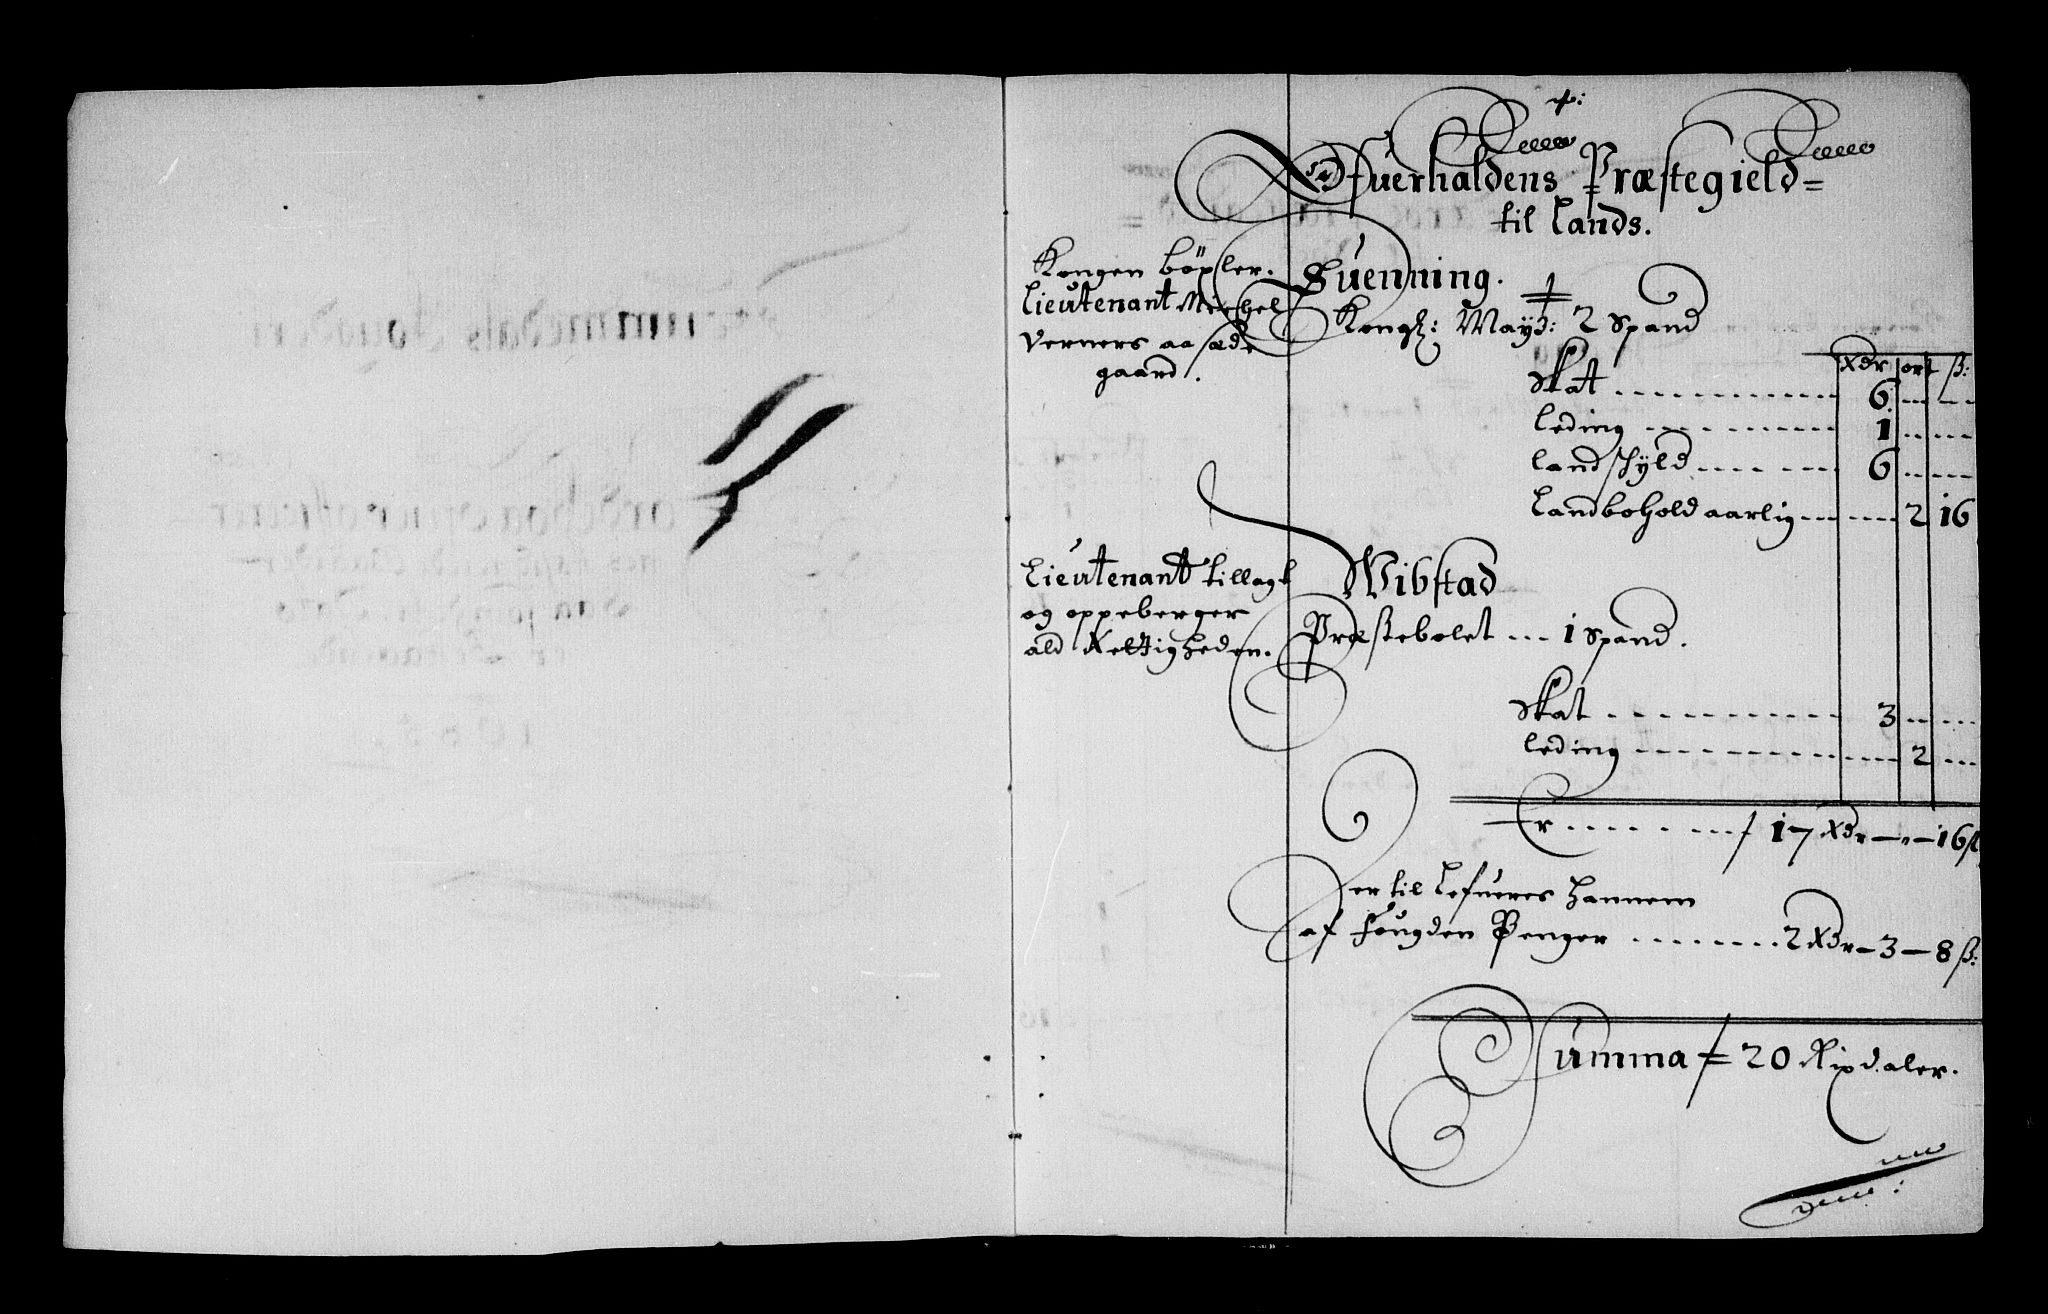 4:
Ofuerhaldens Præstegield=
til Lands.
Kongen böxler.
Lieutenant Michel
Verners aasæde
gaard.
Suenning.
Kongl: Mayd: 2 Spand
Xdr ort ß:
Skat 6
leding 1
landskyld 6
Landbohold aarlig 2 16
Lieutenant tillagt
og oppeberger
ald Rettigheden.
Wibstad
Præstebolet ... 1 Spand.
Skat 3
leding 2
Er 17 Xdr — " — 16 ß
Der til Lefueres hannem
af fougden Penger 2 Xdr — 3 — 8 ß:
Summa 20 Rixdaler.